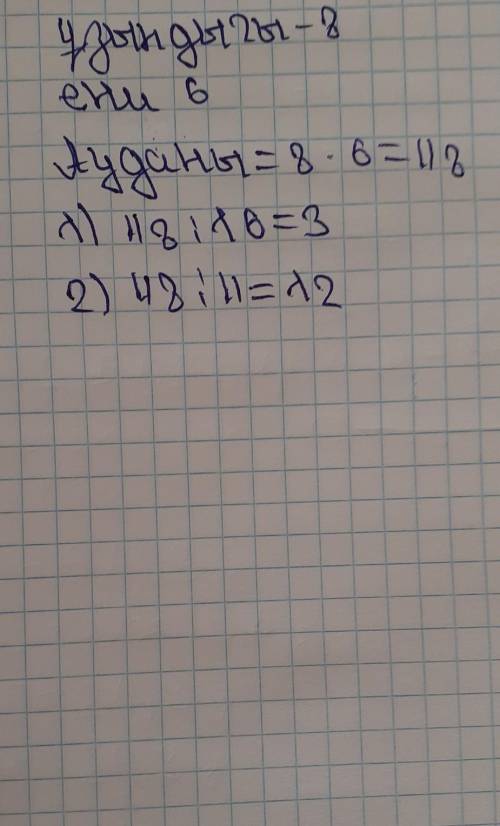 Ұзындығы - 8
ені 6
Ауданы = 8 · 6 = 48
1) 48 : 16 = 3
2) 48 : 4 = 12